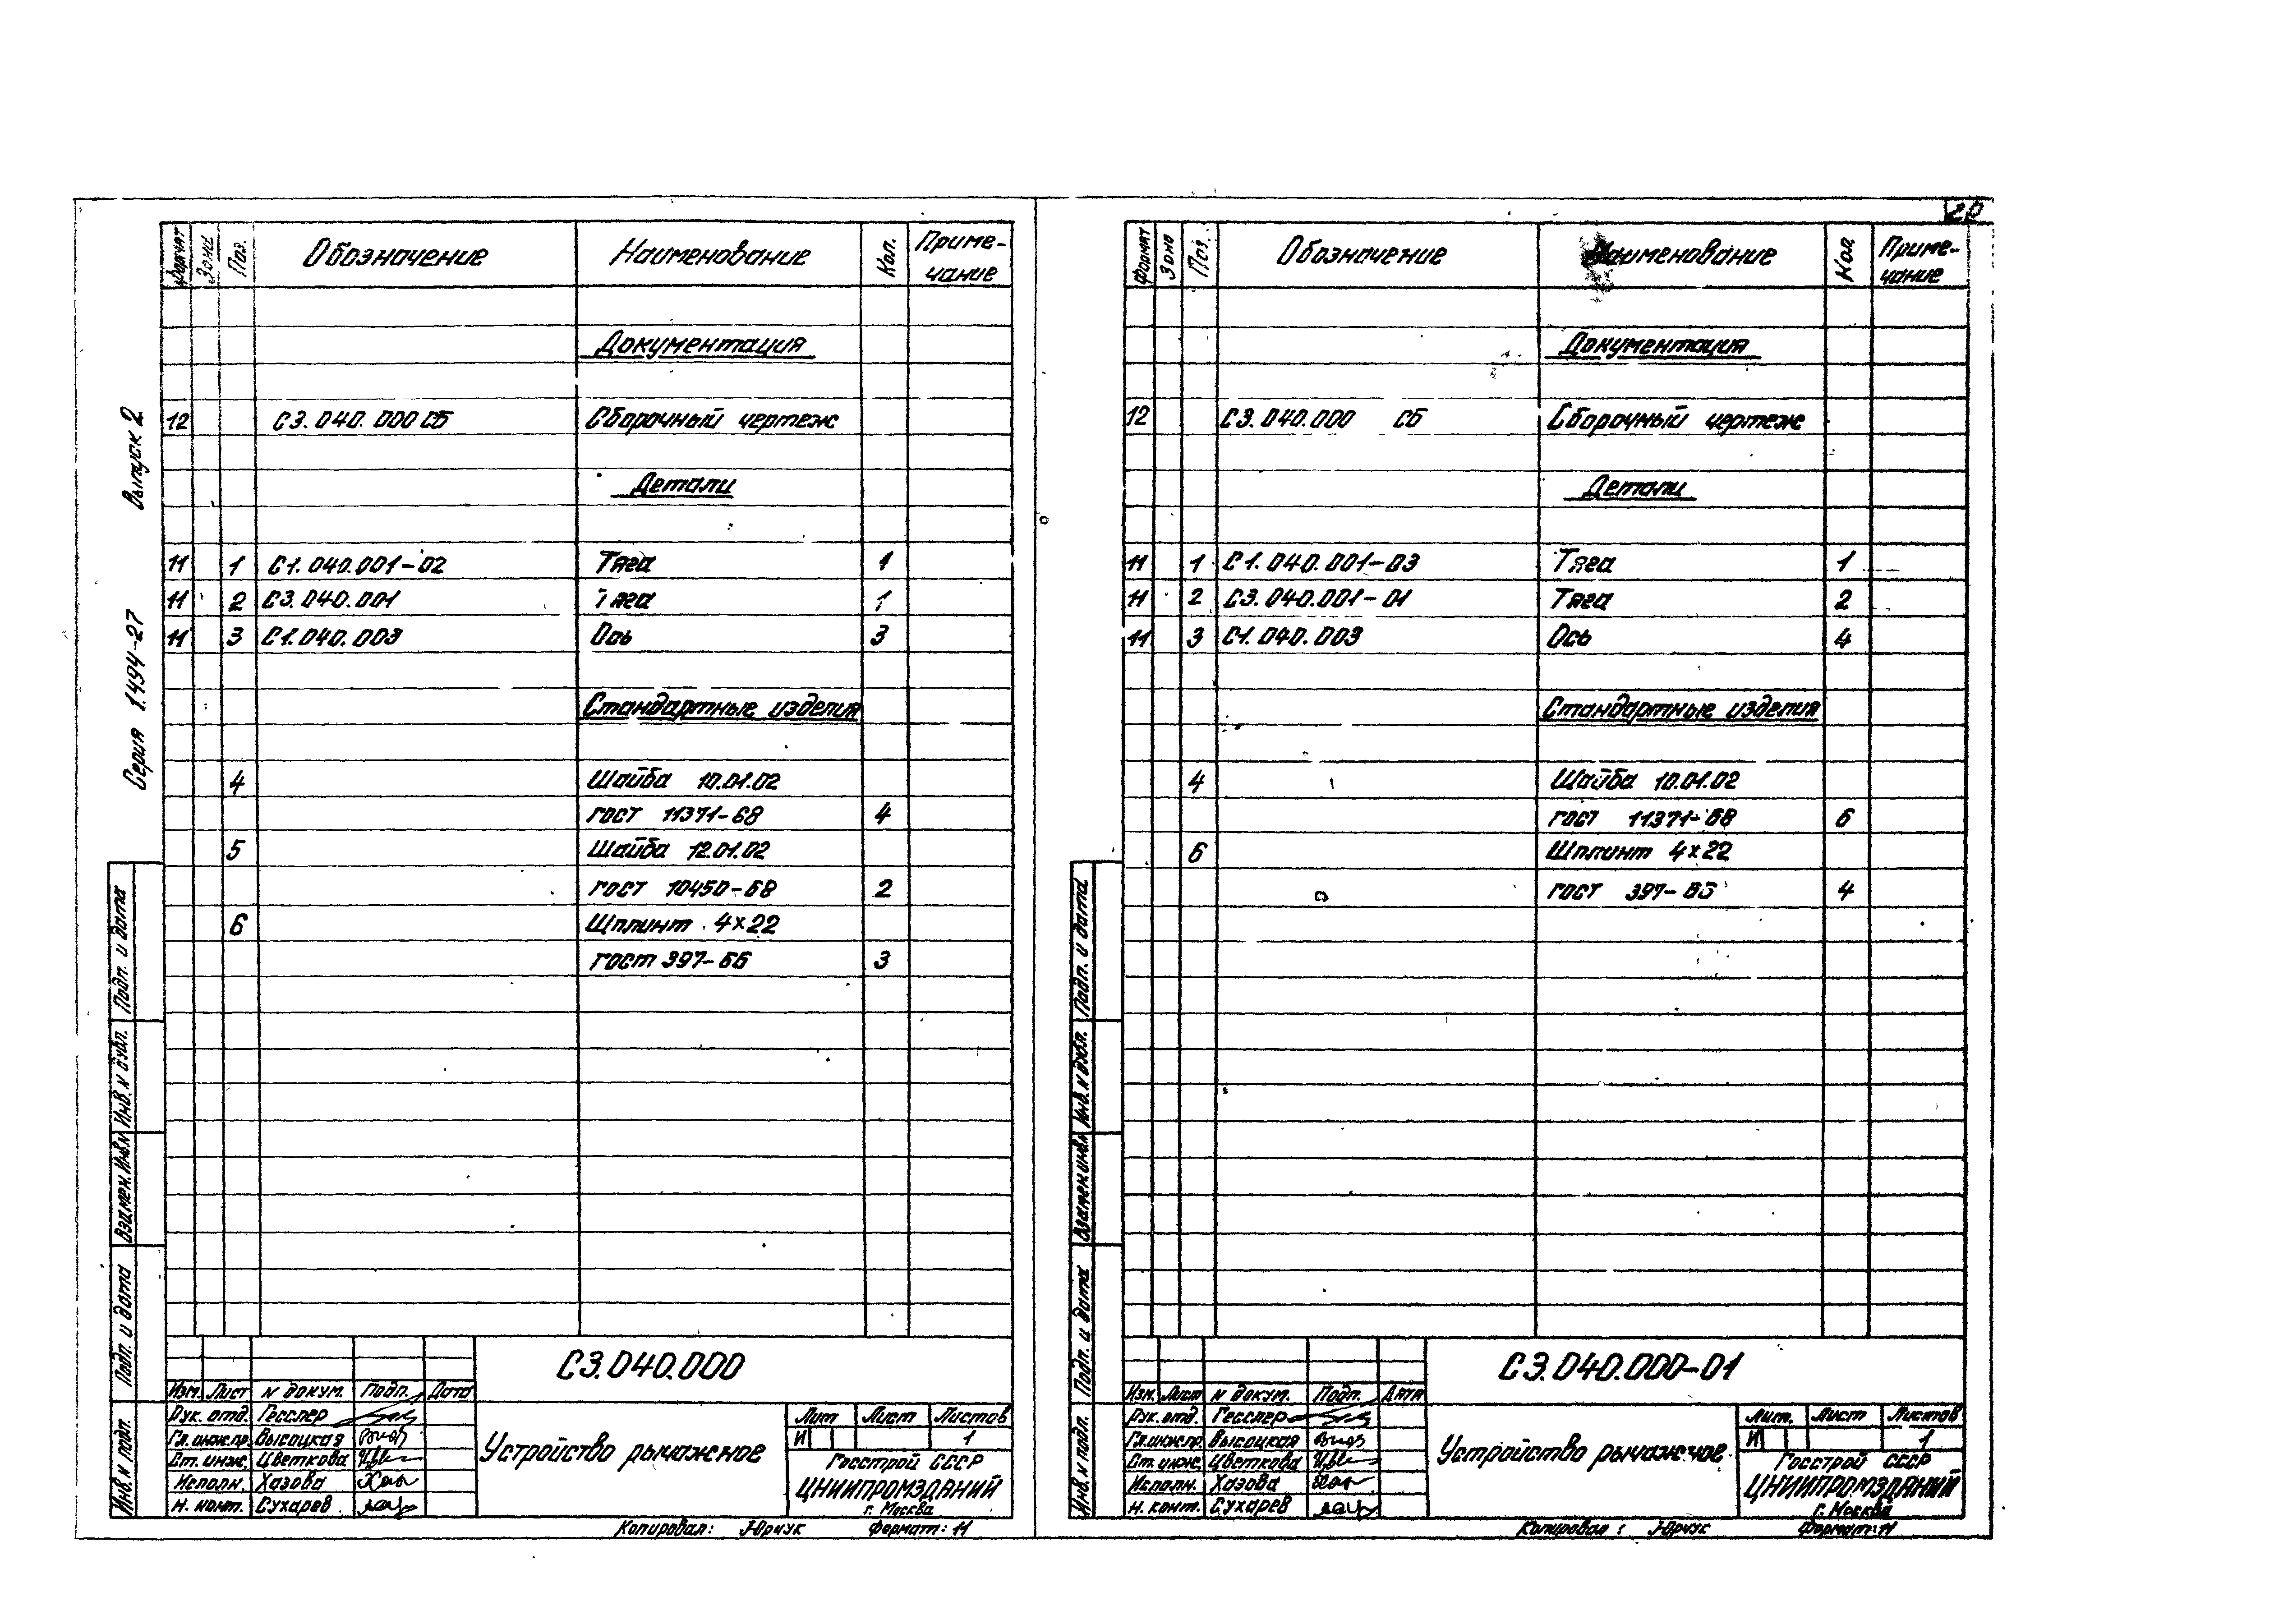 20
Серия 1.494-27 Выпуск 2
Формат Зона Поз. Обозначение Наименование Кол. Приме-
чание
Документация
12 С3.040.000 СБ Сборочный чертеж
Детали
11 1 С1.040.001-02 Тяга 1
11 2 С3.040.001 Тяга 1
11 3 С1.040.003 Ось 3
Стандартные изделия
4 Шайба 10.01.02
ГОСТ 11371-68 4
5 Шайба 12.01.02
ГОСТ 10450-68 2
6 Шплинт 4×22
ГОСТ 397-66 3
Подп. и дата
Инв. N дубл.
Взамен. Инв. N
Подп. и дата
Инв. N подл.
С3.040.000
Изм. Лист N докум. Подп. Дата
Рук. отд. Гесслер
Гл. инж. пр. Высоцкая
Ст. инж. Цветкова
Исполн. Хазова
Н. конт. Сухарев
Устройство рычажное
Лит Лист Листов
И 1
Госстрой СССР
ЦНИИПРОМЗДАНИЙ
г. Москва
Копировал: Юрчук Формат: 11
Формат Зона Поз. Обозначение Наименование Кол Приме-
чание
Документация
12 С3.040.000 СБ Сборочный чертеж
Детали
11 1 С1.040.001-03 Тяга 1
11 2 С3.040.001-01 Тяга 2
11 3 С1.040.003 Ось 4
Стандартные изделия
4 Шайба 10.01.02
ГОСТ 11371-68 6
6 Шплинт 4×22
ГОСТ 397-66 4
Подп. и дата
Инв. N дубл.
Взамен инв. N
Подп. и дата
Инв. N подл.
С3.040.000-01
Изм. Лист N докум. Подп. Дата
Рук. отд. Гесслер
Гл. инж. пр. Высоцкая
Ст. инж. Цветкова
Исполн. Хазова
Н. конт. Сухарев
Устройство рычажное
Лит. Лист Листов
И 1
Госстрой СССР
ЦНИИПРОМЗДАНИЙ
г. Москва
Копировал: Юрчук Формат: 11